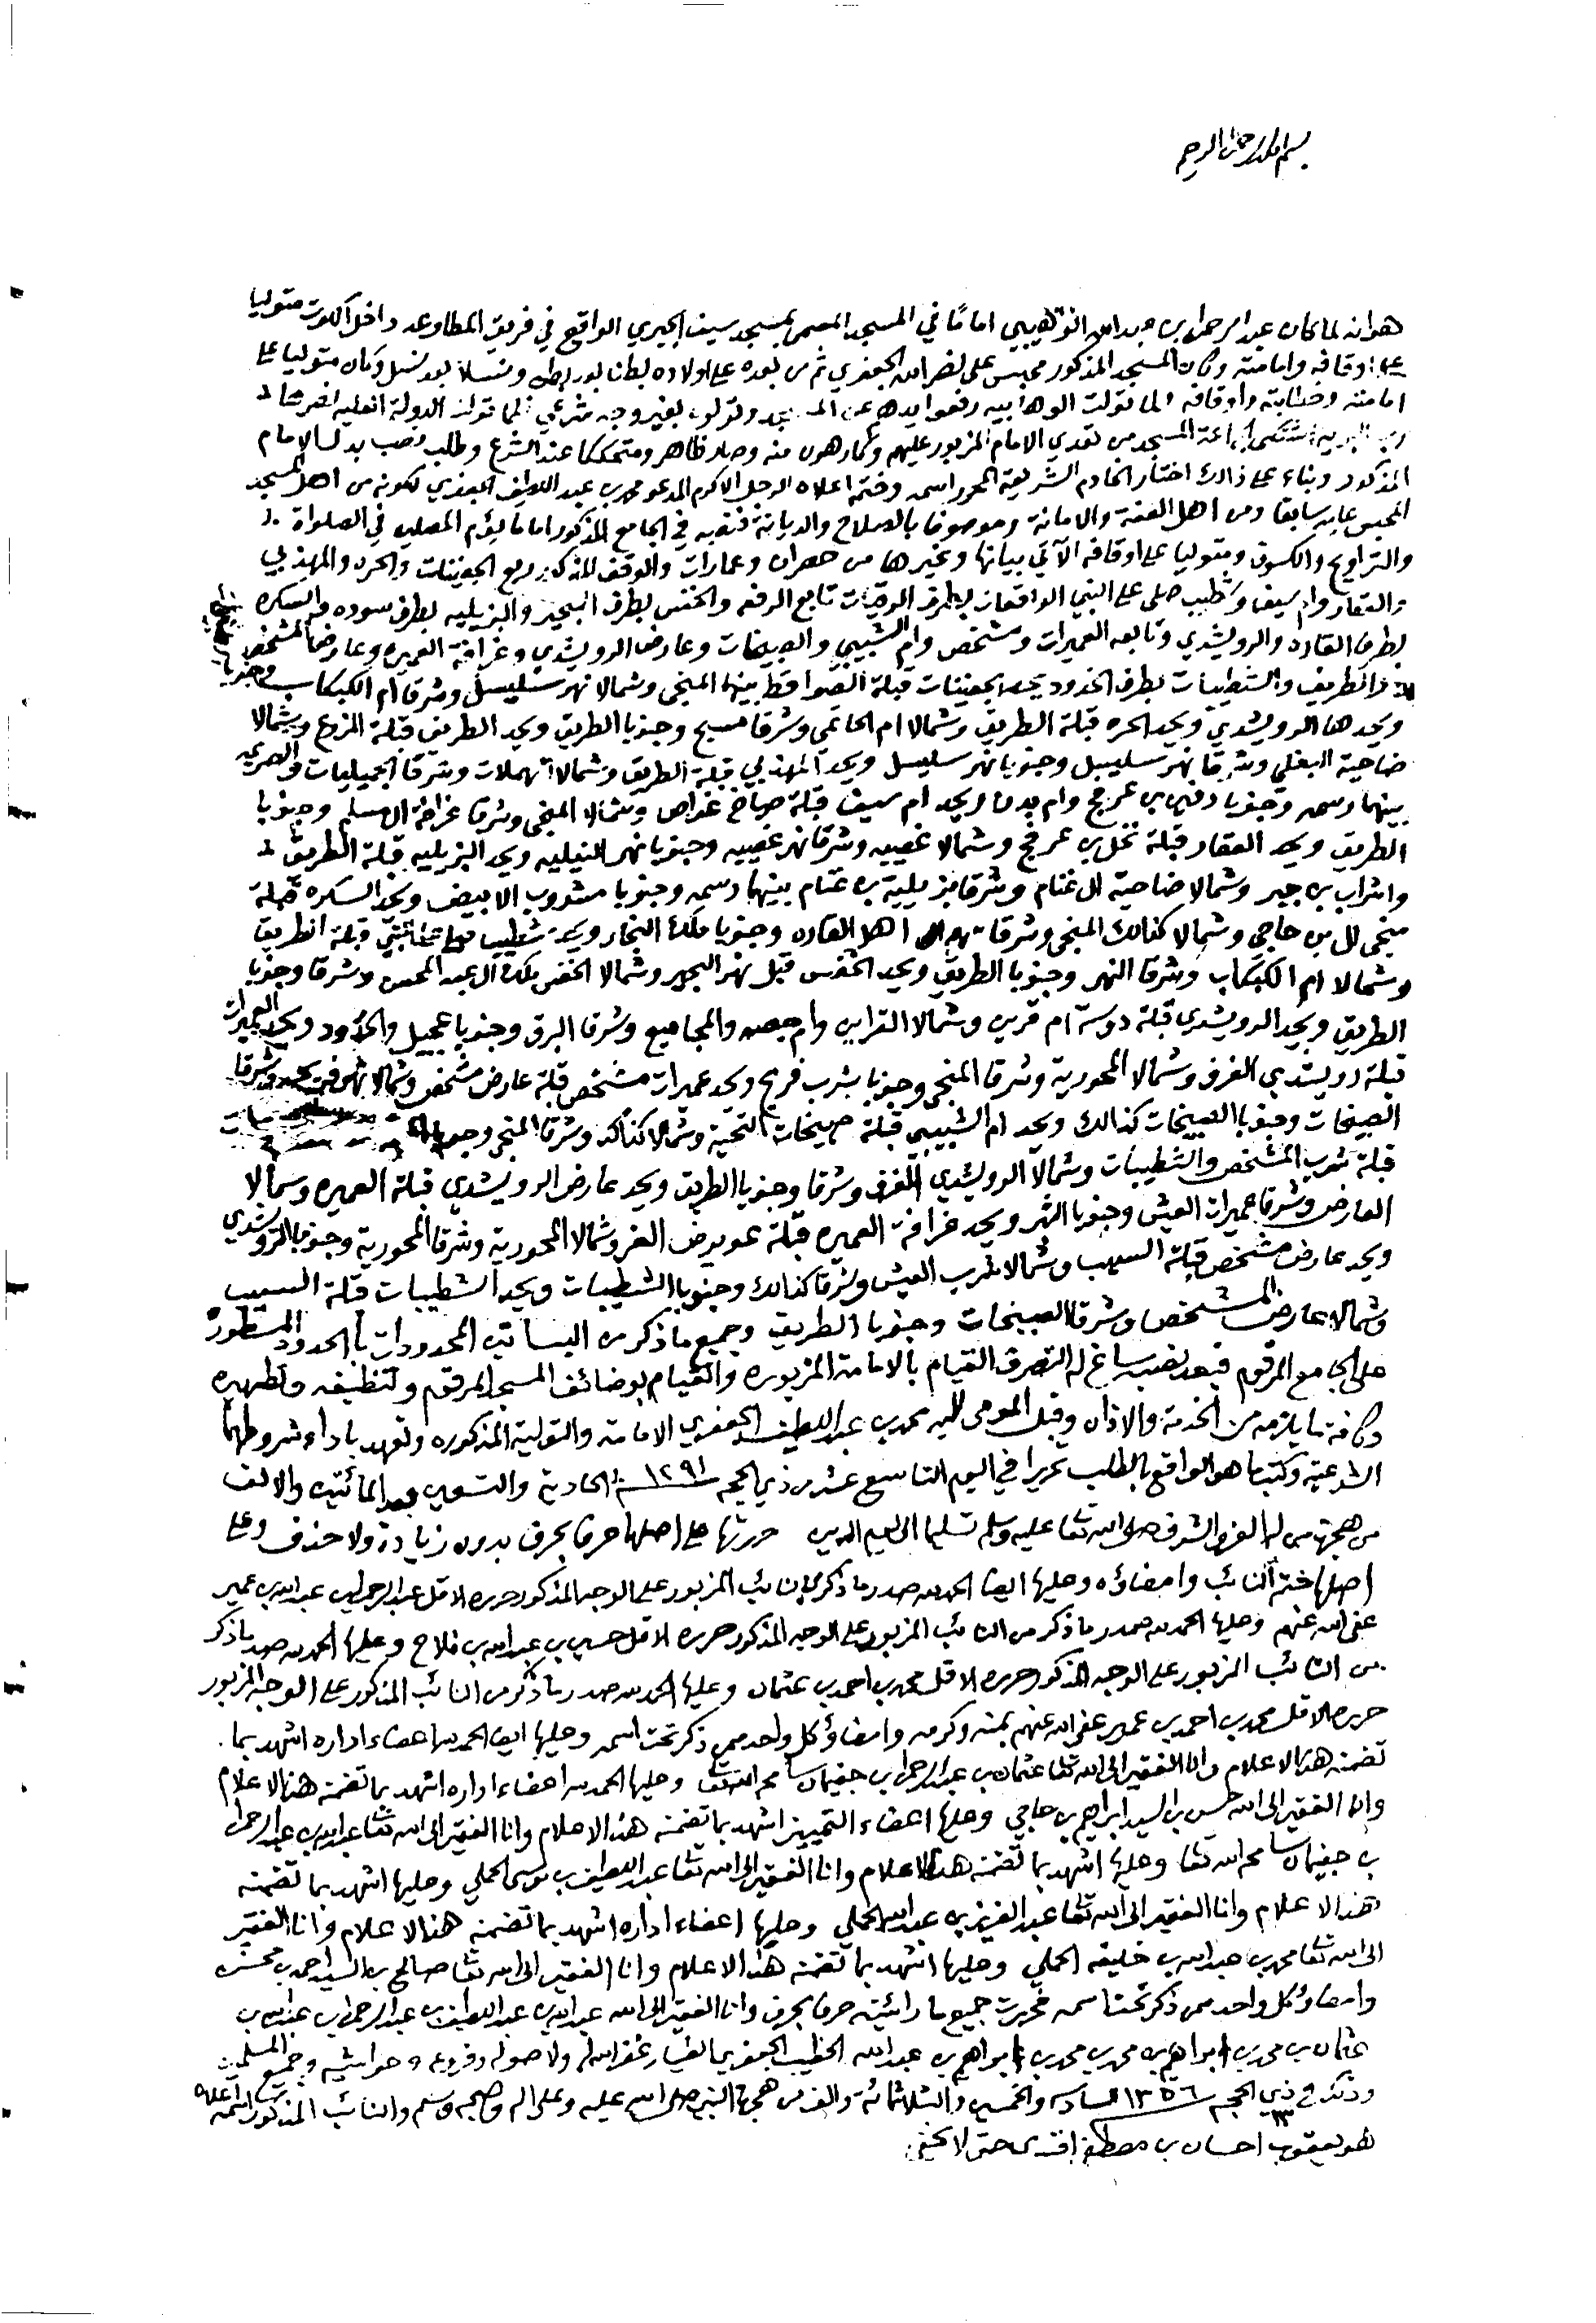 بسم الله الرحمن الرحيم
هو انه لما كان عبد الرحمن بن عبد الله الوهيبي اماما في المسجد المسمى بمسجد سيف الجبري الواقع في فريق المطاوعه داخل الكوت متوليا
على اوقافه وامامته وكان المسجد المذكور محبس على نصر الله الجعفري ثم من بعده على اولاده بطنا بعد بطن ونسلا بعد نسل وكان متوليا على
امامته وخطابته واوقافه ولما تولت الوهابيه رفعوا يدهم عن المسجد وتولوه بغير وجه شرعي فلما تولت الدولة العليه
اشتكى جماعة المسجد من تعدي الامام المزبور عليهم وكارهون منه وصار ظاهر ومتحكما عند الشرع وطلب نصب بدل الامام
المذكور وبناء على ذالك اختار الخادم الشريعة المحرر اسمه وختمه اعلاه الرجل الاكرم المدعو محمد بن عبد اللطيف الجعفري لكونه من اهل المسجد
المحبس عليه سابقا ومن اهل العفة والامانة وموصوفا بالصلاح والديانة فنصبه في الجامع المذكور اماما يؤم المصلين في الصلواة
والتراويح والكسوف ومتوليا على اوقافه الآتي بيانها وغيرها من حصران وعمارات والوقف المذكور ربع الجعينات والحره والمهذبي
والعقار وام سيف وشطيب صلى على النبي الواقعات بطرف الرقيات تابع الرفعه والخفس بطرف البحير والبزيليه بطرف سوده والسكره
بطرف القاره والرويشدي وتابعه العميرات ومشخص وام الشبيبي والصبيخات وعارض الرويشدي وغرافة العميره وعارض المشخص
والطريف والشطيبات بطرف الحدود يحد الجعينات قبلة الصوافط بينها المنجى وشمالا نهر سليسل وشرقا ام الكبكاب وجنوبا
ويحدها الرويشدي ويحد الحره قبلة الطريق وشمالا ام الحاتمي وشرقا مسيح وجنوبا الطريق ويحد الطريف قبلة المزرع وشمالا
ضاحية البغلي وشرقا نهر سليسل وجنوبا نهر سليسل ويحد المهذبي قبلة الطريق وشمالا الهملات وشرقا الجميليات والصرعيه
بينهما رسمه وجنوبا دفين بن عرفج وام بدن ويحد ام سيف قبلة صباخ غراص وشمالا المنجى وشرقا غرافة ال مسلم وجنوبا
الطريق ويحد العقار قبلة نخل بن عرفج وشمالا غصيبه وشرقا نهر غصيبه وجنوبا نهر النيليه ويحد البزيليه قبلة الطريق
واشراب بن جبر وشمالا ضاحية ال غنام وشرقا بزيلية بن غنام بينهما رسمه وجنوبا مشروب الابيض ويحد السكره قبلة
منجى لال بن حاجي وشمالا كذالك المنجى وشرقا نهر اهل القاره وجنوبا ملك النجار ويحد شطيب قبلة الطريق
وشمالا ام الكبكاب وشرقا النهر وجنوبا الطريق ويحد الخفس قبل نهر البحير وشمالا الخفس ملك ال عبد المحسن وشرقا وجنوبا
الطريق ويحد الرويشدي قبلة دوسة ام قرين وشمالا القراين وام جصه والمجاميع وشرقا البرق وجنوبا عجيل والحدود ويحد العميرات
قبلة رويشدي الغرف وشمالا المحورية وشرقا المنجى وجنوبا بشرب فريح ويحد عميرات مشخص قبلة عارض مشخص وشمالا وشرقا
الصبيخات وجنوبا الصبيخات كذالك ويحد ام الشبيبي قبلة صبيخات التحتية وشمالا كذالك وشرقا المنجى وجنوبا
قبلة شرب المشخص والشطيبات وشمالا الرويشدي الغرف وشرقا وجنوبا الطريق ويحد عارض الرويشدي قبلة العميره وشمالا
العارض وشرقا عميرات العيش وجنوبا النهر ويحد غرافة العميره قبلة عويرض الغر وشمالا المحورية وشرقا المحورية وجنوبا الرويشدي
ويحد عارض مشخص قبلة السيب وشمالا شرب العيش وشرقا كذالك وجنوبا الشطيبات ويحد الشطيبات قبلة السيب
وشمالا عارض المشخص وشرقا الصبيخات وجنوبا الطريق وجميع ما ذكر من البساتين المحدودات بالحدود المسطوره
على الجامع المرقوم فبعد نصبه ساغ له التصرف القيام بالامامة المزبوره والقيام بوضائف المسجد المرقوم وتنظيفه وتطهيره
وكافة ما يلزمه من الخدمة والاذان وقبل المومى اليه محمد بن عبد اللطيف الجعفري الامامة والتولية المذكوره وتعهد باداء شروطهما
الشرعية وكتب ما هو الواقع بالطلب تحريرا في اليوم التاسع عشر من ذي الحجه سنة ١٢٩١ الحادية والتسعين بعد المائتين والالف
من هجرة من له العز والشرف صلى الله تعا عليه وسلم تسليما الى يوم الدين حررتها على اصلها حرفا بحرف بدون زيادة ولا حذف وعلى
اصلها ختم النائب وامضاؤه وعليها ايضا الحمد لله صدر ما ذكر من النائب المزبور على الوجه المذكور حرره الاقل عبد الرحمن بن عبد الله بن عمير
عفى الله عنهم وعليها الحمد لله صدر ما ذكر من النائب المزبور على الوجه المذكور حرره الاقل حسين بن عبد الله بن فلاح وعليها الحمد لله صدر ما ذكر
من النائب المزبور على الوجه المذكور حرره الاقل محمد بن احمد بن عثمان وعليها الحمد لله صدر ما ذكر من النائب المذكور على الوجه المزبور
حرره الاقل محمد بن احمد بن عمير عفى الله عنهم بمنه وكرمه وامضاؤ كل واحد ممن ذكر تحت اسمه وعليها ايضا الحمد لله اعضاء اداره اشهد بما
تضمنه هذا الاعلام وانا الفقير الى الله تعا عثمان بن عبد الرحمن بن جغيمان سامحم الله تعا وعليها الحمد لله اعضاء اداره اشهد بما تضمنه هذا الاعلام
وانا الفقير الى الله حسن بن السيد ابراهيم بن حاجي وعليها اعضاء التمييز اشهد بما تضمنه هذا الاعلام وانا الفقير الى الله تعا عبد الله بن عبد الرحمن
بن جغيمان سامحم الله تعا وعليها اشهد بما تضمنه هذا الاعلام وانا الفقير الى الله تعا عبد اللطيف بن موسى الحملي وعليها اشهد بما تضمنه
هذا الاعلام وانا الفقير الى الله تعا عبد العزيز بن عبد الله الحملي وعليها اعضاء اداره اشهد بما تضمنه هذا الاعلام وانا الفقير
الى الله تعا محمد بن عبد الله بن خليفه الحملي وعليها اشهد بما تضمنه هذا الاعلام وانا الفقير الى الله تعا صالح بن السيد احمد بن محسن
وامضاؤ كل واحد ممن ذكر تحت اسمه فحررت جميع ما رائيته حرفا بحرف وانا الفقير الى الله عبد الله بن عبد اللطيف بن عبد الرحمن بن عبد الله بن
عثمان بن محمد بن ابراهيم بن محمد بن محمد بن ابراهيم بن عبد الله الخطيب الجعفري الطيار غفر الله له ولاصوله وفروعه وحواشيه وجميع المسلمين
وذلك في ١٣ ذي الحجه سنة ١٣٥٦ السادسه والخمسين والثلاثمائة والف من هجرة النبي صلى الله عليه وعلى اله وصحبه وسلم والنائب المذكور اسمه اعلاه
هو يعقوب احسان بن مصطفى افندى حتى لا يخفى